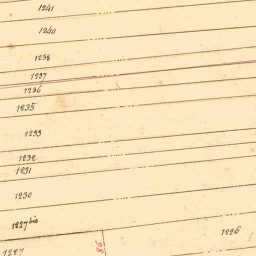 1241
1240
1238
1237
1236
1235
1233
1232
1231
1230
1227 bis
1226
1227
98